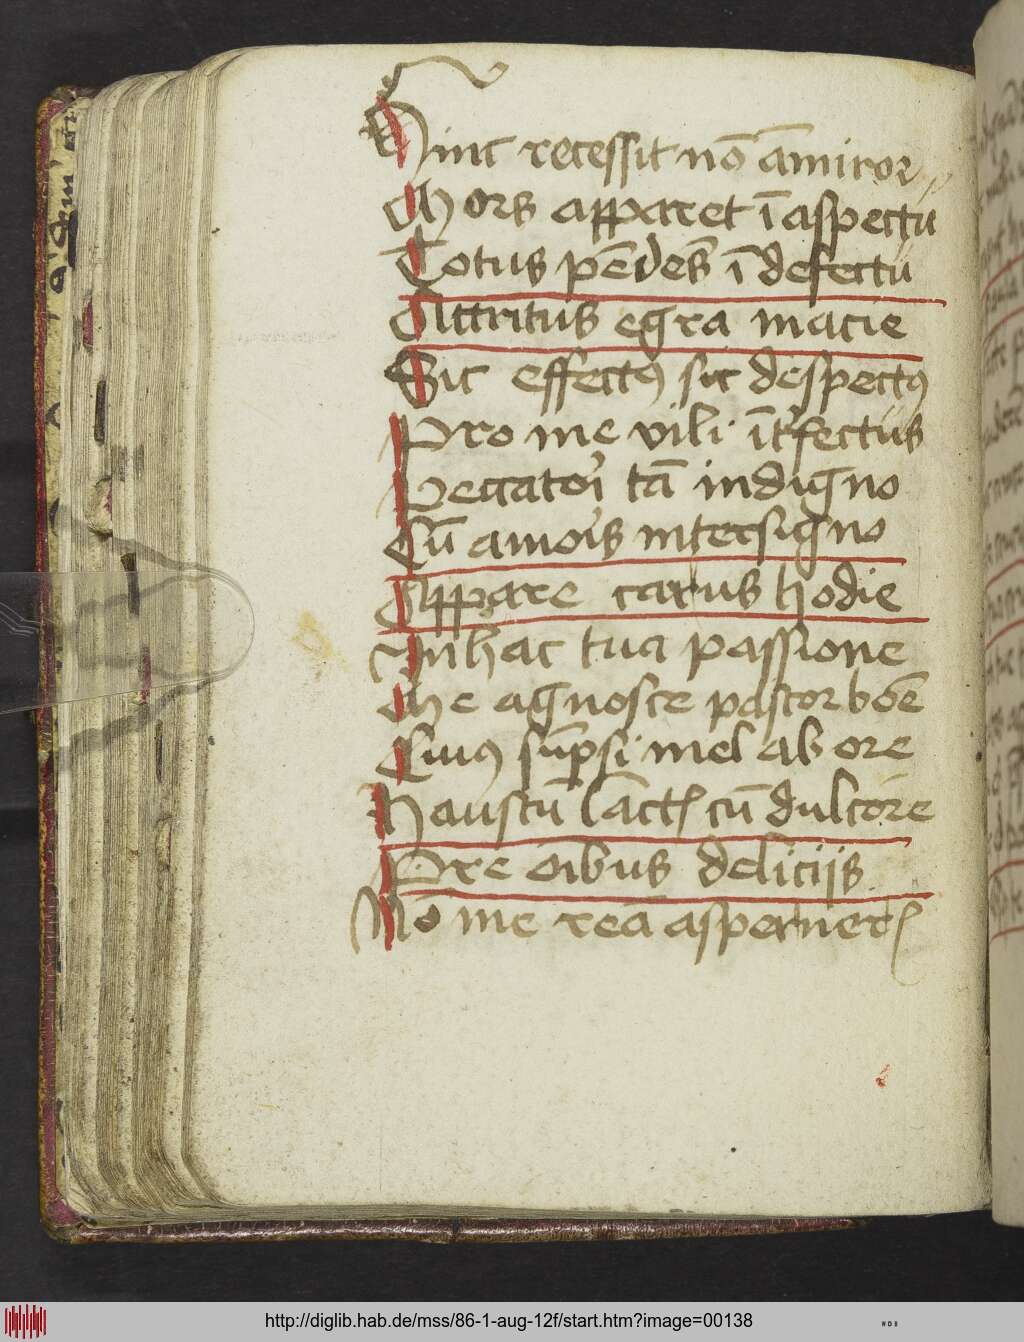 Hinc recessit nō āmiror
Mors apparet ī aspectu
Totus pēdēs ī defectu
Attritus egra macie
Sic effectꝰ sic despectꝰ
Pro me vili īt'fectus
Peccatori tā indigno
Cū amoris intersigno
Appare carus hodie
In hac tua passione
Me agnosce pastor bōe
Cuiꝰ sūpsi mel ab ore
Haustū lāctꝭ cū dulcore
Pre oībus delicijs
Nō me reā asperneꝭ
http://diglib.hab.de/mss/86-1-aug-12f/start.htm?image=00138